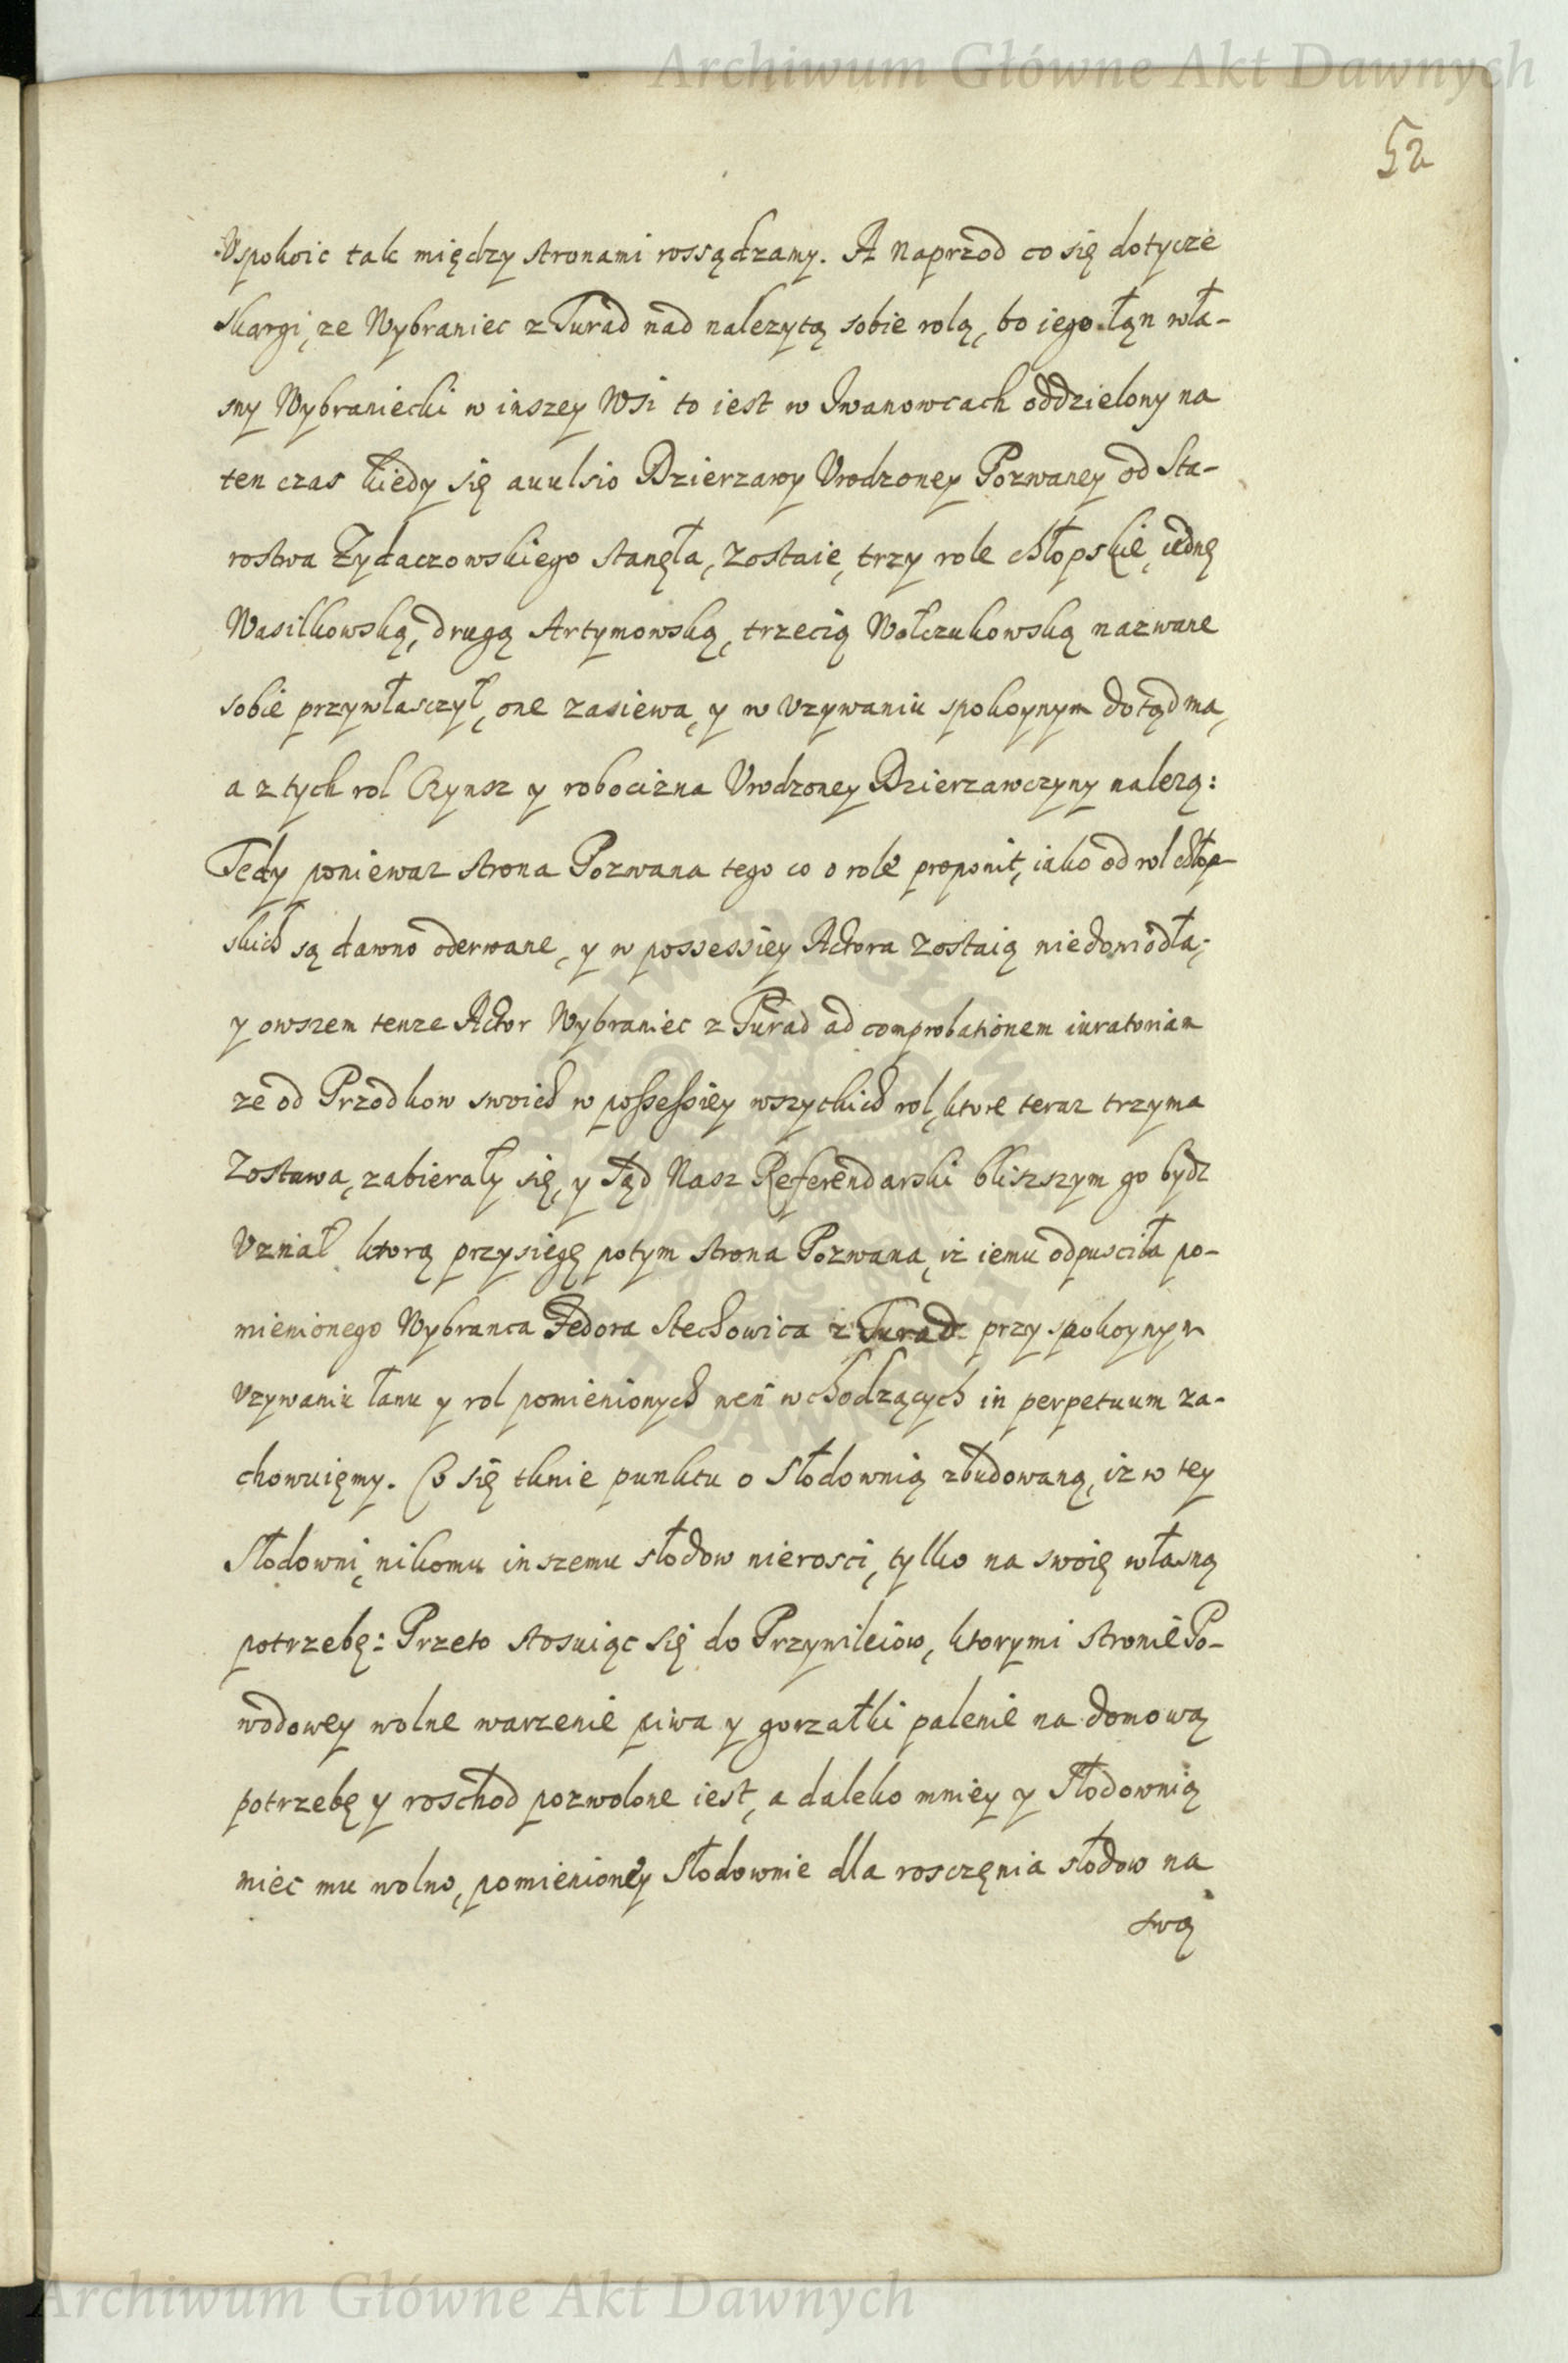 Archiwum Główne Akt Dawnych
52
Uspokoic tak między stronami rossądzamy. A naprzod co się dotycze
skargi, ze Wybraniec z Turad nad nalezytą sobie rolą, bo iego łąn wła-
sny Wybraniecki w inszey Wsi to iest w Iwanowcach oddzielony na
ten czas kiedy się auulsio Dzierzawy Urodzoney Pozwaney od Sta-
rostwa Zydaczowskiego stanęła, zostaie, trzy role chłopskie, iednę
Wasilkowską, drugą Artymowską, trzecią Wołczukowską nazwane
sobie przywłasczył, one zasiewa, y w uzywaniu spokoynym dotąd ma,
a z tych rol Czynsz y robocizna Urodzoney Dzierzawczyny nalezą:
Tedy poniewaz strona Pozwana tego co o role proponit, iako od rol chłop-
skich są dawno oderwane, y w possessiey Actora zostaią niedowiodła;
y owszem tenze Actor Wybraniec z Turad ad comprobationem iuratoriam
ze od Przodkow swoich w possessiey wszytkich rol, ktore teraz trzyma
zostawa, zabierały się, y Sąd Nasz Referendarski bliszszym go bydz
Uznał ktorą przysięgę potym strona Pozwana, iz iemu odpusciła po-
mienionego Wybranca Fedora Stechowica z Turad przy spokoynym
Uzywaniu łanu y rol pomienionych weń wchodzących in perpetuum za-
chowuięmy. Co się tknie punktu o Słodownią zbudowaną, iz w tey
Słodowni, nikomu inszemu słodow nierosci, tylko na swoię własną
potrzebę: Przeto stosuiąc się do Przywileiow, ktorymi stronie Po-
wodowey wolne warzenie piwa y gorzałki palenie na domową
potrzebę y roschod pozwolone iest, a daleko mniey y Słodownią
miec mu wolno, pomienioney Słodownie dla rosczęnia słodow na
swą
Archiwum Główne Akt Dawnych